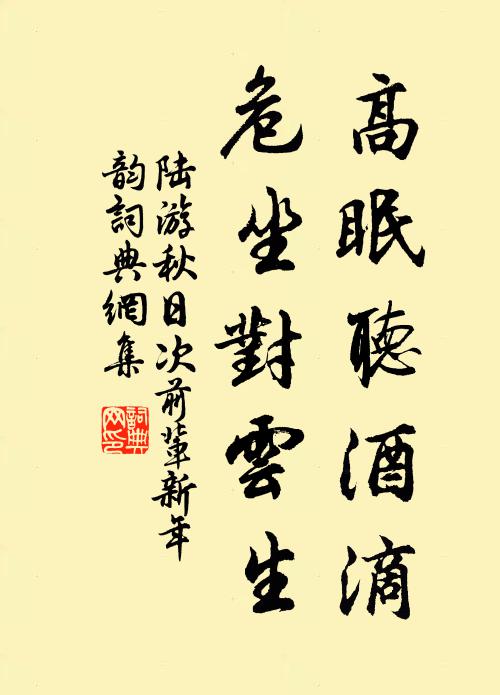 高眠聽酒滴
危坐對雲生
陆游秋日次前輩新年
韵詞典網集
詞典
网印